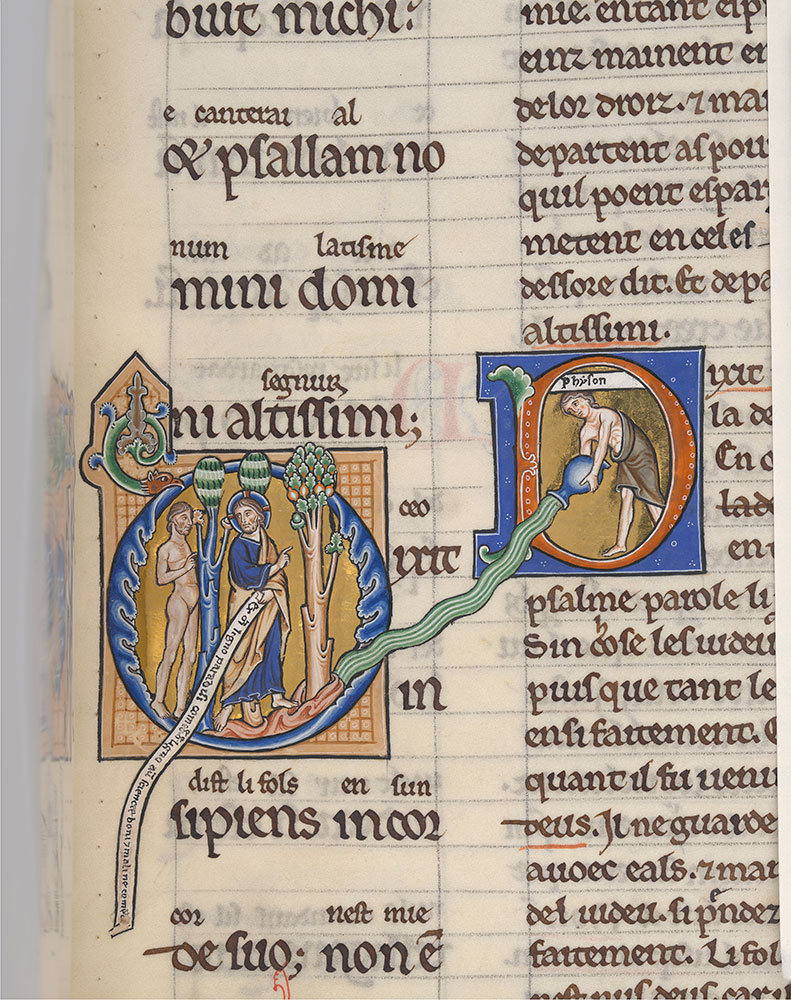 buit michi:
e canterai al
& psallam no
num latisme
mini domi
segnur
ni altissimi;
ceo
ixit
in
dist li fols en sun
sipiens incor
cor nest mie
de suo; non ē
ex oī ligno paradisi comede ligno aū sciencie boni ⁊ mali ne comed
mie. entant
einz mainent en
de lor droiz. ⁊ mai
departent as pou
quil poent espar
metent en celes
dessore dit. Et depa
altissimi.
physon
ixit
la de
En
lade
en
psalme parole li
Sin chose les iudeu
puis que tant le
ensi faitement.
quant il fu uenu
deus. Il ne guarde
auoec eals. ⁊ mai
del iudeu. si p̄ndez
faitement. Li fol
nest nus deus car il